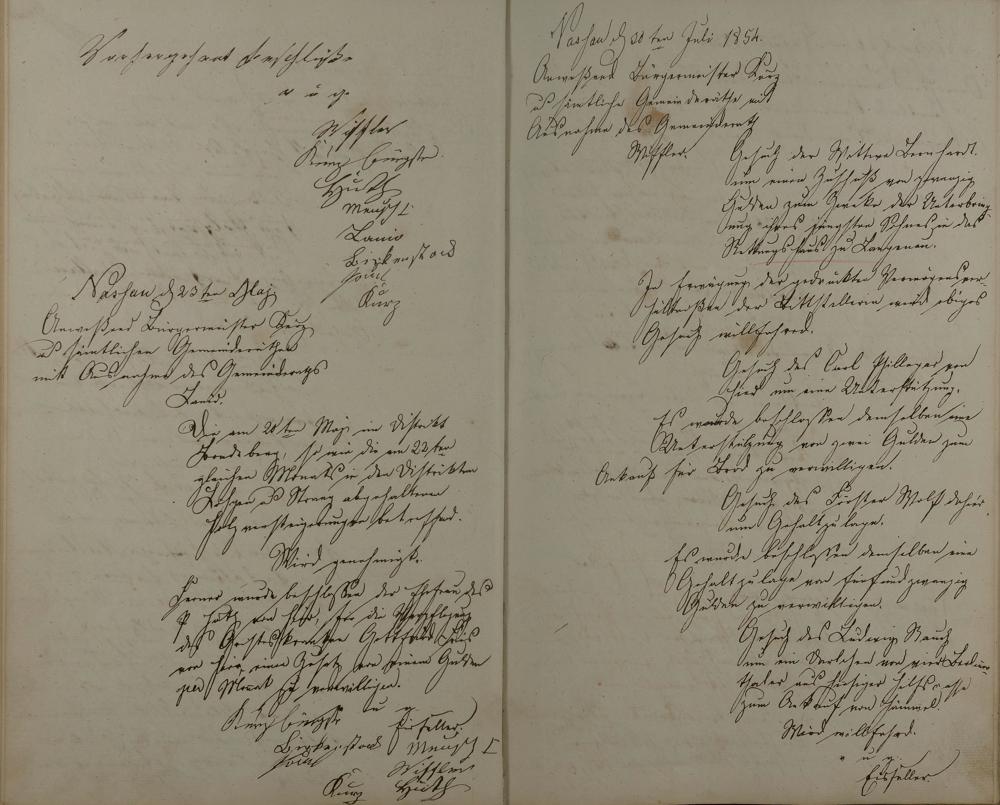 Vorstehende Beschlüsse
v u g
Wiffler
Kurz Bürgstr.
Huth
Mensch I
Lanio
Birkenstock
Kurz
Nassau d 23ten Maj
Anweßend Bürgermeister Kurz
ud sämtlichen Gemeinderäthen
mit Ausnahme des Gemeinderaths
Lanio.
Die am 20ten Maj im Distrikt
so wie die am 22ten
gleichen Monats in den Distrikten
ud abgehaltenen
Holzversteigerungen betreffend.
Wird genehmigt.
Ferner wurde beschlossen der Ehefrau des
von hier, für die Verpflegung
des Geisteskranken Gottfried
von hier, einen Zusatz von einem Gulden
per Monat zu verwilligen.
v u g
Kurz Bürgstr Eißeller
Birkenstock Mensch I
Wiffler
Kurz Huth
Nassau d 20ten Juli 1854.
Anweßend Bürgermeister Kurz
ud sämtliche Gemeinderäthe mit
Ausnahme des Gemeinderath
Wiffler.
Gesuch der Wittwe Bernhardt
um einen Zuschuß von zwanzig
Gulden zum Zwecke der Unterbrin-
gung ihres jüngsten Sohnes in das
Rettungshaus zu Langenau.
In Erwägung der gedrückten Vermögensver-
hältnisse der Bittstellerin wird obiges
Gesuch willfahrd.
Gesuch des Carl von
hier um eine Unterstützung.
Es wurde beschlossen demselben eine
Unterstützung von zwei Gulden zum
Ankauf für Brod zu verwilligen.
Gesuch des Förster Wolf dahier
um Gehaltzulage.
Es wurde beschlossen demselben eine
Gehaltzulage von fünfundzwanzig
Gulden zu verwilligen.
Gesuch des Ludwig Rauch
um ein Darlehen von vier
thaler aus hiesiger
zum Ankauf von
Wird willfahrd.
v u g.
Eißeller